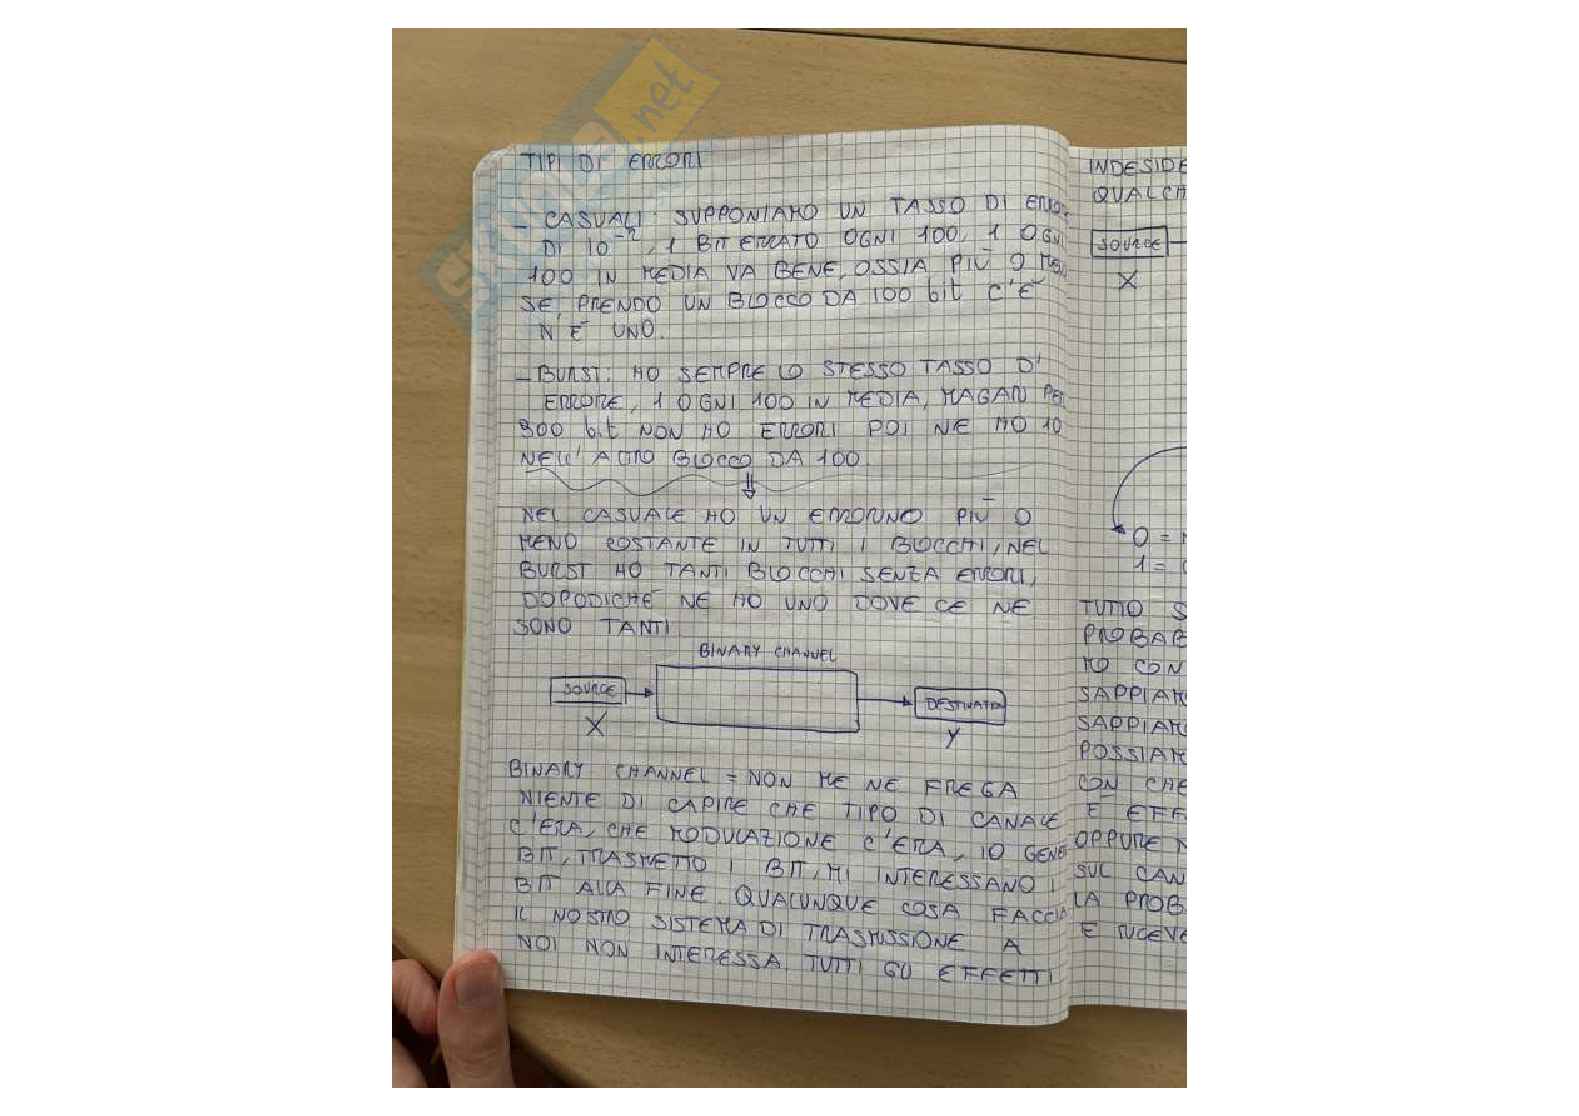 SKUOLA.net
TIPI DI ERRORI
- CASUALI: SUPPONIAMO UN TASSO DI ERRO
DI 10⁻², 1 BIT ERRATO OGNI 100, 1 OGNI
100 IN MEDIA VA BENE, OSSIA PIÙ O ME
SE PRENDO UN BLOCCO DA 100 bit C'È
N'È UNO.
- BURST: HO SEMPRE LO STESSO TASSO D'
ERRORE, 1 OGNI 100 IN MEDIA, MAGARI PER
900 bit NON HO ERRORI POI NE HO 10
NELL'ALTRO BLOCCO DA 100
NEL CASUALE HO UN ERRORINO PIÙ O
MENO COSTANTE IN TUTTI I BLOCCHI, NEL
BURST HO TANTI BLOCCHI SENZA ERRORI,
DOPODICHÈ NE HO UNO DOVE CE NE
SONO TANTI
BINARY CHANNEL
SOURCE
DESTINATA
X
Y
BINARY CHANNEL = NON ME NE FREGA
NIENTE DI CAPIRE CHE TIPO DI CANALE
C'ERA, CHE MODULAZIONE C'ERA, IO GENE
BIT, TRASMETTO I BIT, MI INTERESSANO I
BIT ALLA FINE. QUALUNQUE COSA FACCIA
IL NOSTRO SISTEMA DI TRASMISSIONE A
NOI NON INTERESSA TUTTI GLI EFFETTI
INDESIDE
QUALCH
SOURCE
X
0 =
1 =
TUTTO S
PROBAB
MO CON
SAPPIAM
SAPPIAM
POSSIAM
CON CHE
È EFF
OPPURE N
SUL CAN
LA PROB
E RICEVE